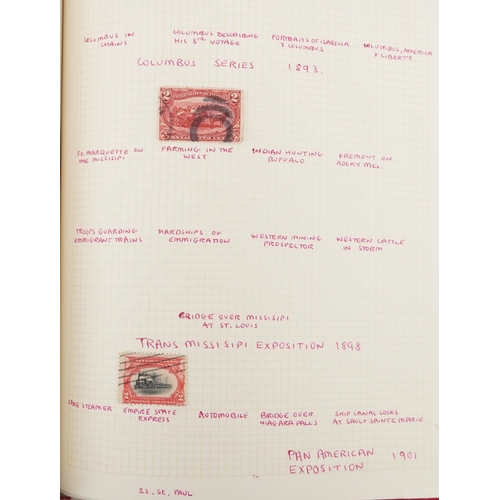 COLUMBUS IN
CHAINS
COLUMBUS DESCRIBING
HIS 3rd VOYAGE
PORTRAITS OF ISABELLA
& COLUMBUS
COLUMBUS, AMERICA
& LIBERTY
COLUMBUS SERIES 1893.
2 2
FR. MARQUETTE ON
THE MISSISIPI.
FARMING IN THE
WEST
INDIAN HUNTING
BUFFALO
FREMONT ON
ROCKY MTS.
TROOPS GUARDING
EMMIGRANT TRAINS
HARDSHIPS OF
EMMIGRATION
WESTERN MINING
PROSPECTOR
WESTERN CATTLE
IN STORM
BRIDGE OVER MISSISIPI
AT ST. LOUIS
TRANS MISSISIPI EXPOSITION 1898
2 2
LAKE STEAMER
EMPIRE STATE
EXPRESS
AUTOMOBILE
BRIDGE OVER
NIAGARA FALLS
SHIP CANAL LOCKS
AT SAULT SAINTE MARIE.
PAN AMERICAN 1901
EXPOSITION
S.S. ST. PAUL